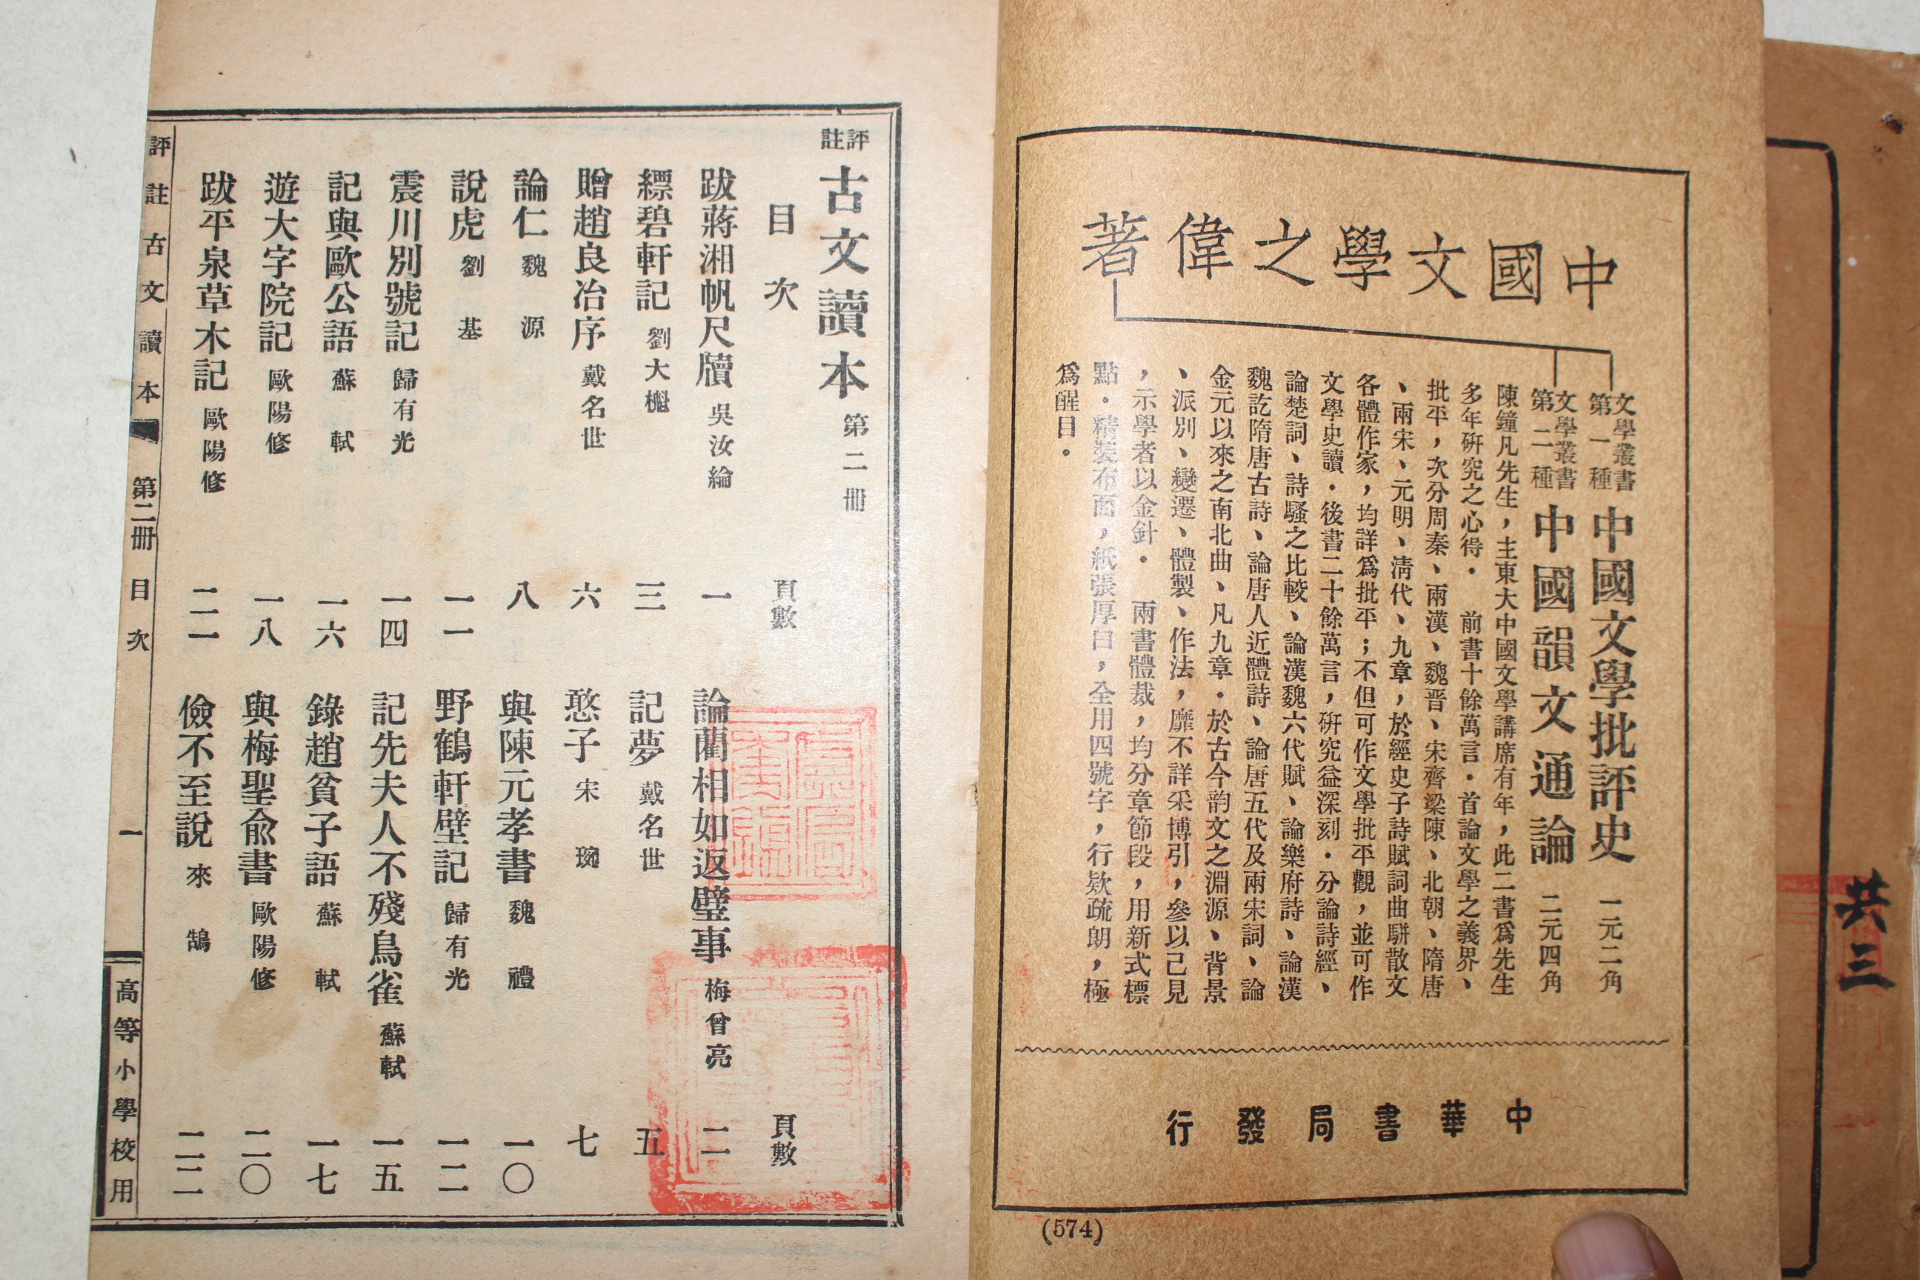 共三
中國文學之偉著
文學叢書第一種 中國文學批評史 一元二角
文學叢書第二種 中國韻文通論 二元四角
陳鐘凡先生，主東大中國文學講席有年，此二書爲先生
多年硏究之心得． 前書十餘萬言．首論文學之義界、
批平，次分周秦、兩漢、魏晋、宋齊梁陳、北朝、隋唐
、兩宋、元明、清代、九章，於經史子詩賦詞曲駢散文
各體作家，均詳爲批平；不但可作文學批平觀，並可作
文學史讀．後書二十餘萬言，硏究益深刻．分論詩經、
論楚詞、詩騷之比較、論漢魏六代賦、論樂府詩、論漢
魏訖隋唐古詩、論唐人近體詩、論唐五代及兩宋詞、論
金元以來之南北曲、凡九章．於古今韵文之淵源、背景
、派別、變遷、體製、作法，靡不詳采博引，參以己見
，示學者以金針． 兩書體裁，均分章節段，用新式標
點．精裝布面，紙張厚白，全用四號字，行欵疏朗，極
爲醒目．
中華書局發行
(574)
評註古文讀本 第二冊
目次 頁數 頁數
跋蔣湘帆尺牘 吳汝綸 一 論藺相如返璧事 梅曾亮 二
縹碧軒記 劉大櫆 三 記夢 戴名世 五
贈趙良冶序 戴名世 六 憨子 宋琬 七
論仁 魏源 八 與陳元孝書 魏禮 一〇
說虎 劉基 一一 野鶴軒壁記 歸有光 一二
震川別號記 歸有光 一四 記先夫人不殘鳥雀 蘇軾 一五
記與歐公語 蘇軾 一六 錄趙貧子語 蘇軾 一七
遊大字院記 歐陽修 一八 與梅聖兪書 歐陽修 二〇
跋平泉草木記 歐陽修 二一 儉不至說 來鵠 二二
評註古文讀本 第二冊 目次 一 高等小學校用